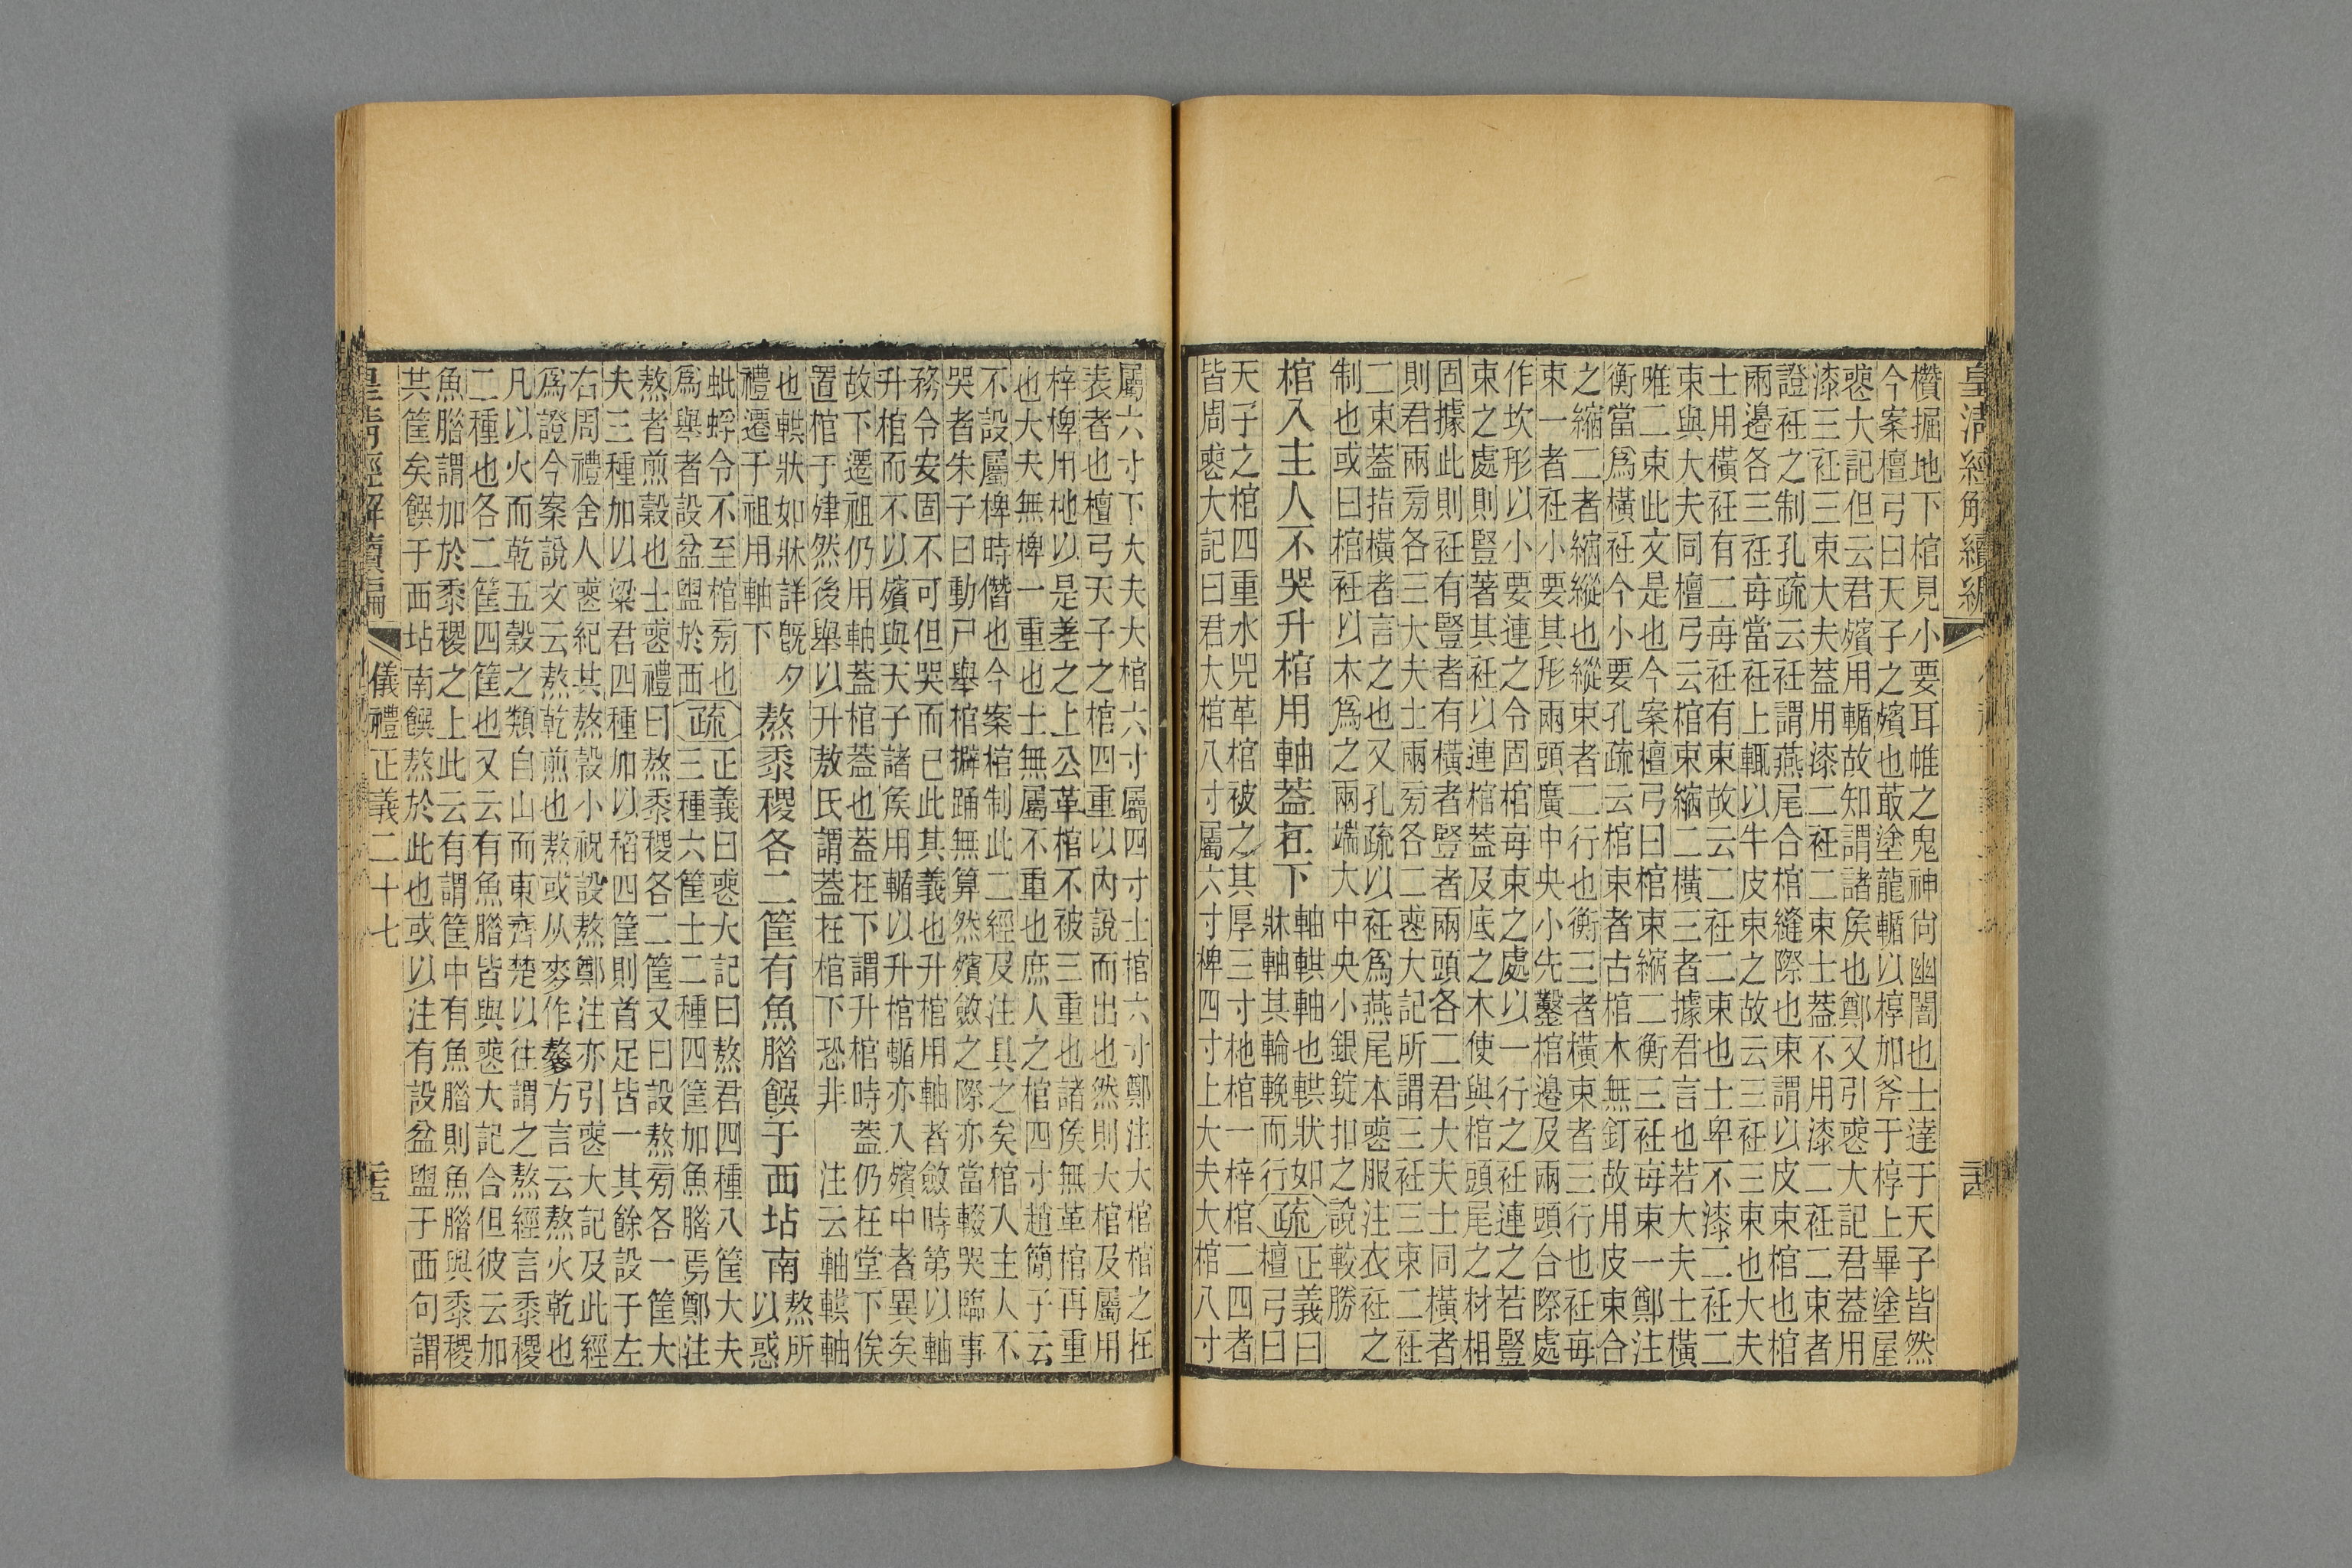 皇清經解續編
欑掘地下棺見小要耳帷之鬼神尙幽闇也士達于天子皆然
今案檀弓曰天子之殯也菆塗龍輴以椁加斧于椁上畢塗屋
䘮大記但云君殯用輴故知謂諸矦也鄭又引䘮大記君葢用
漆三衽三束大夫葢用漆二衽二束士葢不用漆二衽二束者
證衽之制孔疏云衽謂燕尾合棺縫際也束謂以皮束棺也棺
兩邊各三衽每當衽上輒以牛皮束之故云三衽三束也大夫
士用橫衽有二每衽有束故云二衽二束也士卑不漆二衽二
束與大夫同檀弓云棺束縮二橫三者據君言也若大夫士橫
唯二束此文是也今案檀弓曰棺束縮二衡三衽每束一鄭注
衡當爲橫衽今小要孔疏云棺束者古棺木無釘故用皮束合
之縮二者縮縱也縱束者二行也衡三者橫束者三行也衽每
束一者衽小要其形兩頭廣中央小先鑿棺邊及兩頭合際處
作坎形以小要連之令固棺每束之處以一行之衽連之若豎
束之處則豎著其衽以連棺葢及底之木使與棺頭尾之材相
固據此則衽有豎者有橫者豎者兩頭各二君大夫士同橫者
則君兩旁各三大夫士兩旁各二䘮大記所謂三衽三束二衽
二束葢指橫者言之也又孔疏以衽爲燕尾本䘮服注衣衽之
制也或曰棺衽以木爲之兩端大中央小銀錠扣之說較勝
棺入主人不哭升棺用軸葢在下
軸輁軸也輁狀如
牀軸其輪輓而行
疏
正義曰
檀弓曰
天子之棺四重水兕革棺被之其厚三寸杝棺一梓棺二四者
皆周䘮大記曰君大棺八寸屬六寸椑四寸上大夫大棺八寸
屬六寸下大夫大棺六寸屬四寸士棺六寸鄭注大棺棺之在
表者也檀弓天子之棺四重以內說而出也然則大棺及屬用
梓椑用杝以是差之上公革棺不被三重也諸矦無革棺再重
也大夫無椑一重也士無屬不重也庶人之棺四寸趙簡子云
不設屬椑時僭也今案棺制此二經及注具之矣棺入主人不
哭者朱子曰動尸舉棺擗踊無算然殯斂之際亦當輟哭臨事
務令安固不可但哭而已此其義也升棺用軸者斂時第以軸
升棺而不以殯與天子諸矦用輴以升棺輴亦入殯中者異矣
故下遷祖仍用軸葢棺葢也葢在下謂升棺時葢仍在堂下俟
置棺于肂然後舉以升敖氏謂葢在棺下恐非　注云軸輁軸
也輁狀如牀詳旣夕
禮遷于祖用軸下
熬黍稷各二筐有魚腊饌于西坫南
熬所
以惑
蚍蜉令不至棺旁也
爲舉者設盆盥於西
疏
正義曰䘮大記曰熬君四種八筐大夫
三種六筐士二種四筐加魚腊焉鄭注
熬者煎穀也士䘮禮曰熬黍稷各二筐又曰設熬旁各一筐大
夫三種加以粱君四種加以稻四筐則首足皆一其餘設于左
右周禮舍人䘮紀其熬穀小祝設熬鄭注亦引䘮大記及此經
爲證今案說文云熬乾煎也熬或从麥作䵅方言云熬火乾也
凡以火而乾五穀之類自山而東齊楚以往謂之熬經言黍稷
二種也各二筐四筐也又云有魚腊皆與䘮大記合但彼云加
魚腊謂加於黍稷之上此云有謂筐中有魚腊則魚腊與黍稷
共筐矣饌于西坫南饌熬於此也或以注有設盆盥于西句謂
皇清經解續編
儀禮正義二十七